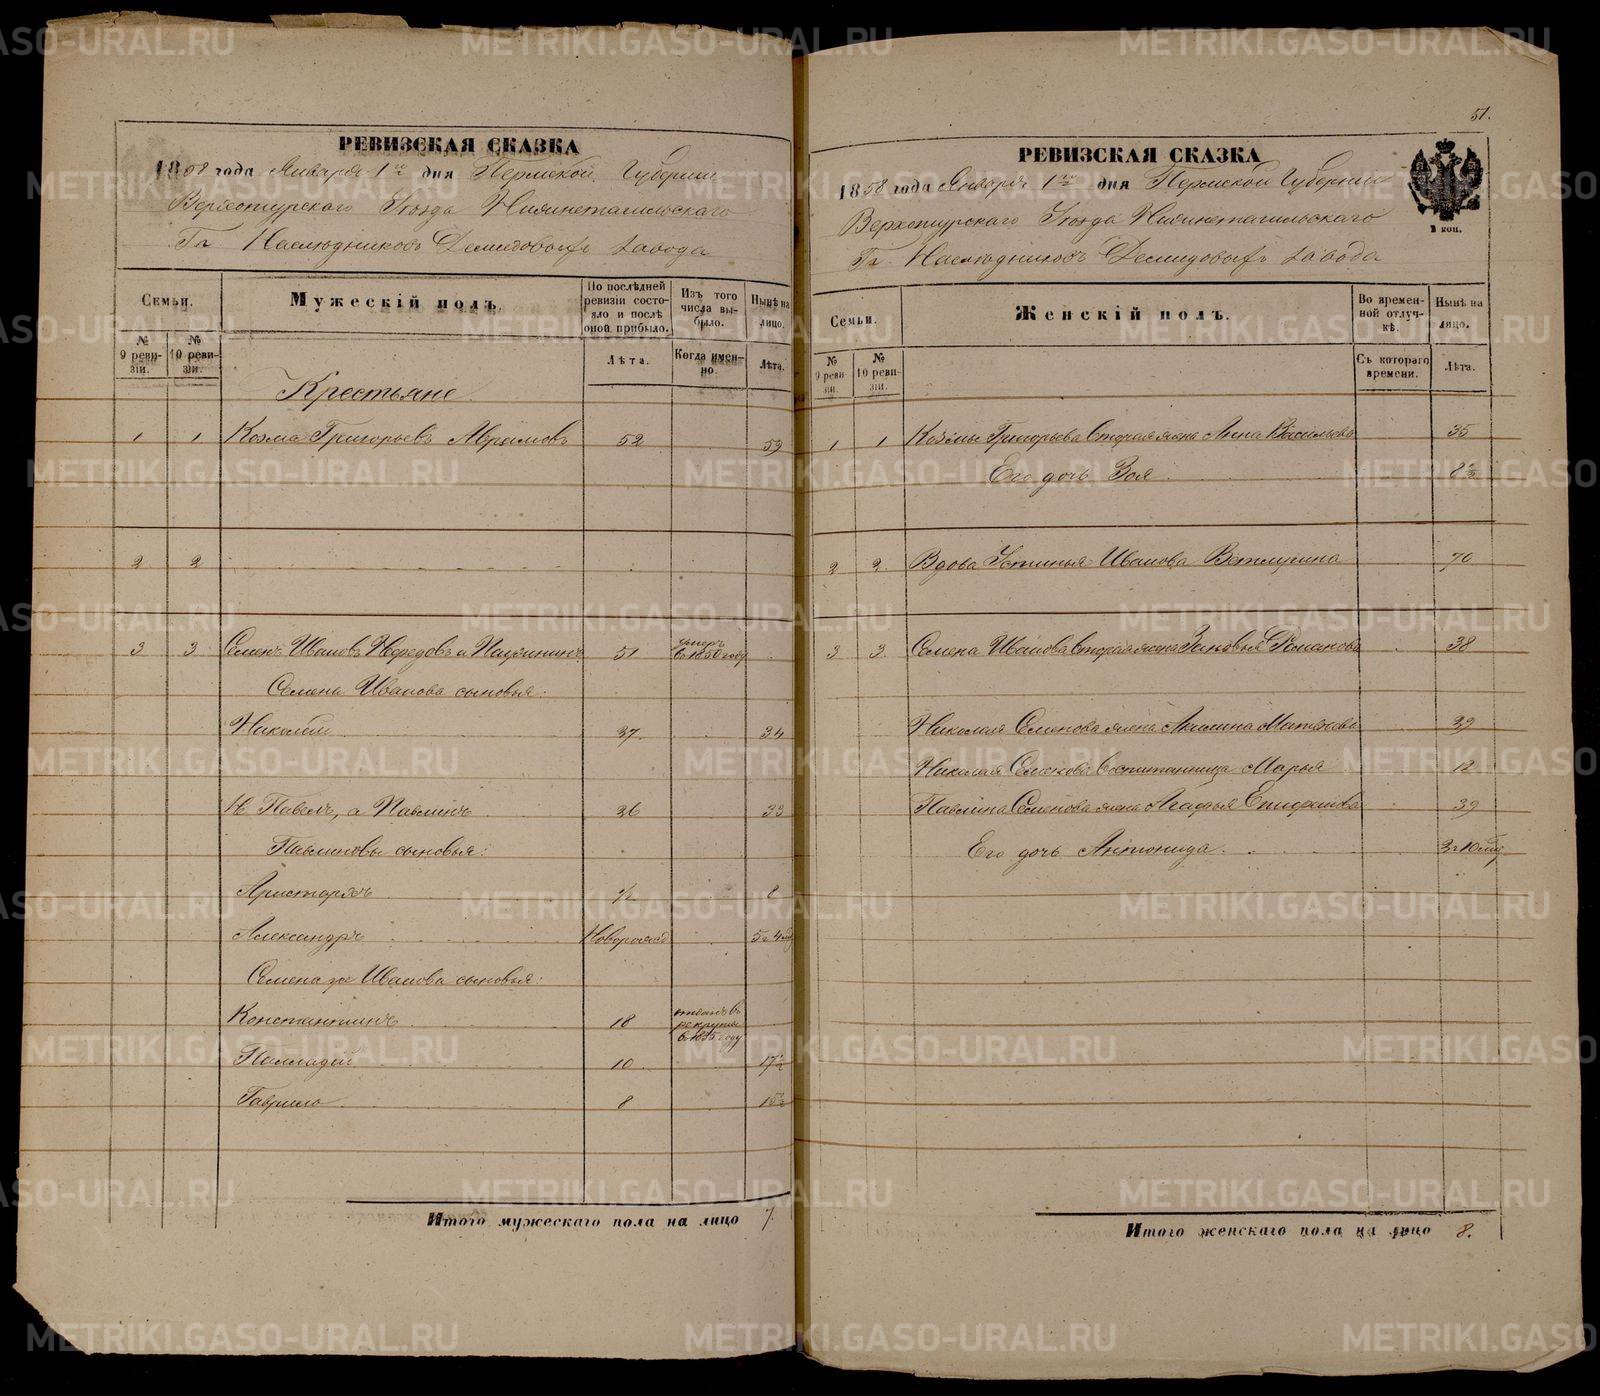 РЕВИЗСКАЯ СКАЗКА
1858 года Января 1го дня Пермской Губернии
Верхотурского Уезда Нижнетагильского
Гг. Наследниковъ Демидовыхъ завода
Семьи.
Мужескій полъ.
По послѣдней ревизіи состояло и послѣ оной прибыло.
Изъ того числа выбыло.
Нынѣ на лицо.
№ 9 ревизіи.
№ 10 ревизіи.
Лѣта.
Когда именно.
Лѣта.
Крестьяне
1 1 Козма Григорьевъ Аврамовъ 52 59
2 2
3 3 Семенъ Ивановъ 51 умеръ в 1850 году
Семена Иванова сыновья:
Николай 27 34
Павелъ, а Павлинъ 26 33
Павлиновы сыновья:
Аристархъ 1/2 8
Александръ Новорожд 5 г 4 мц
Семена же Иванова сыновья:
Константинъ 18 отданъ въ рекруты в 1855 году
Палладий 10 17 1/2
Гаврило 8 15 1/2
Итого мужескаго пола на лицо 7.
51.
РЕВИЗСКАЯ СКАЗКА
1858 года Января 1го дня Пермской Губернии
Верхотурского Уезда Нижнетагильского
Гг. Наследниковъ Демидовыхъ завода
2 коп.
Семьи.
Женскій полъ.
Во временной отлучкѣ.
Нынѣ на лицо.
№ 9 ревизіи.
№ 10 ревизіи.
Съ котораго времени.
Лѣта.
1 1 Козмы Григорьева вторая жена Анна Васильева 35
Его дочь Зоя 8 1/2
2 2 Вдова Устинья Иванова Ветлугина 70
3 3 Семена Иванова вторая жена Зиновья Романова 38
Николая Семенова жена Матвеева 39
Николая Семенова воспитанница Марья 12
Павлина Семенова жена Агафья Епифанова 39
Его дочь Антонида 3 г 10 мц
Итого женскаго пола на лицо 8.
METRIKI.GASO-URAL.RU